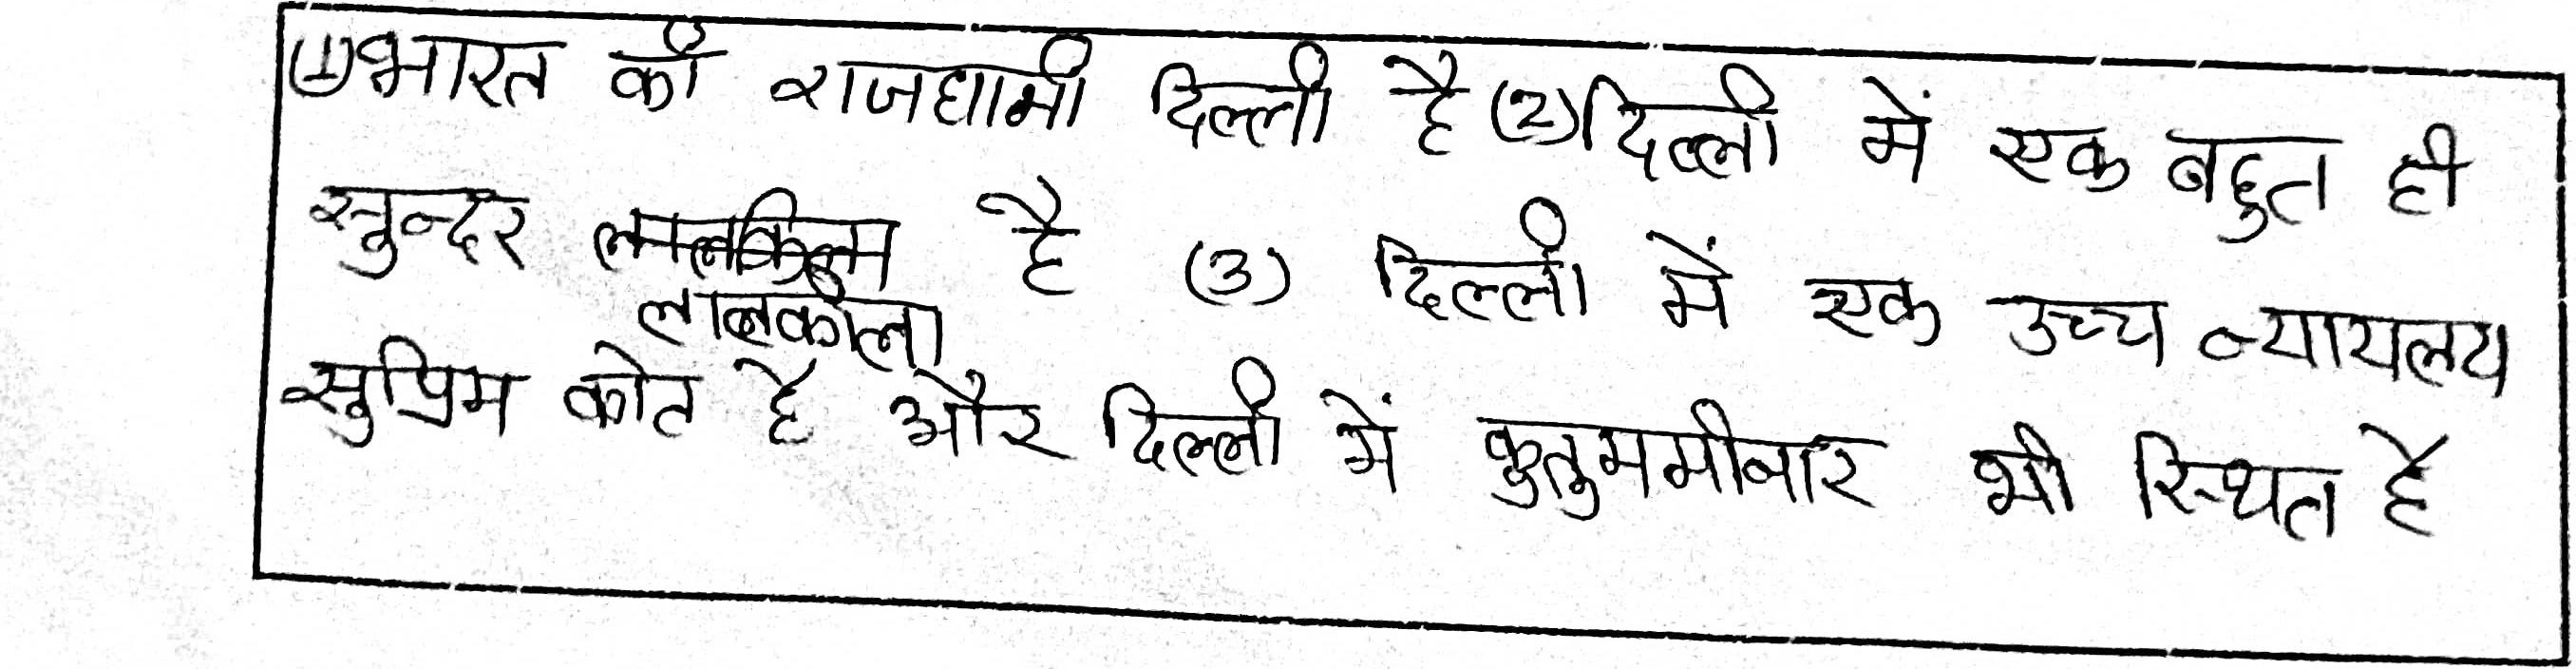 (1) भारत की राजधानी दिल्ली है (2) दिल्ली में एक बहुत ही
सुन्दर है (3) दिल्ली में एक उच्च न्यायलय
लालकीला
सुप्रिम कोट है और दिल्ली में कुतुममीनार भी स्थित है